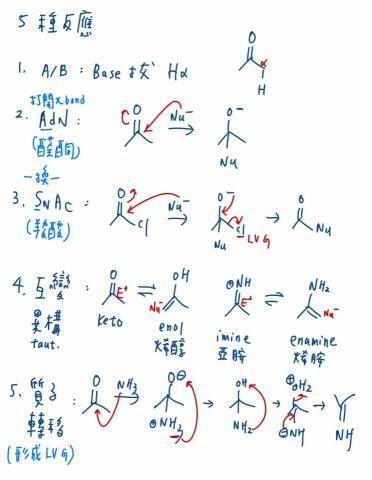 5 種反應
1. A/B : Base 拔 Hα
α
H
打開π bond
2. AdN :
(醛酮)
Nu⁻
O⁻
Nu
一換一
3. SNAc :
(羧酸)
O
Cl
Nu⁻
O⁻
Cl
Nu
LVG
O
Nu
4. 互變
異構
taut.
O
E⁺
keto
OH
Nu⁻
enol
烯醇
⊕NH
E⁺
imine
亞胺
NH₂
Nu⁻
enamine
烯胺
5. 質子
轉移
(形成LVG)
O
NH₃
O⊖
⊕NH₃
OH
NH₂
⊕OH₂
NH
NH